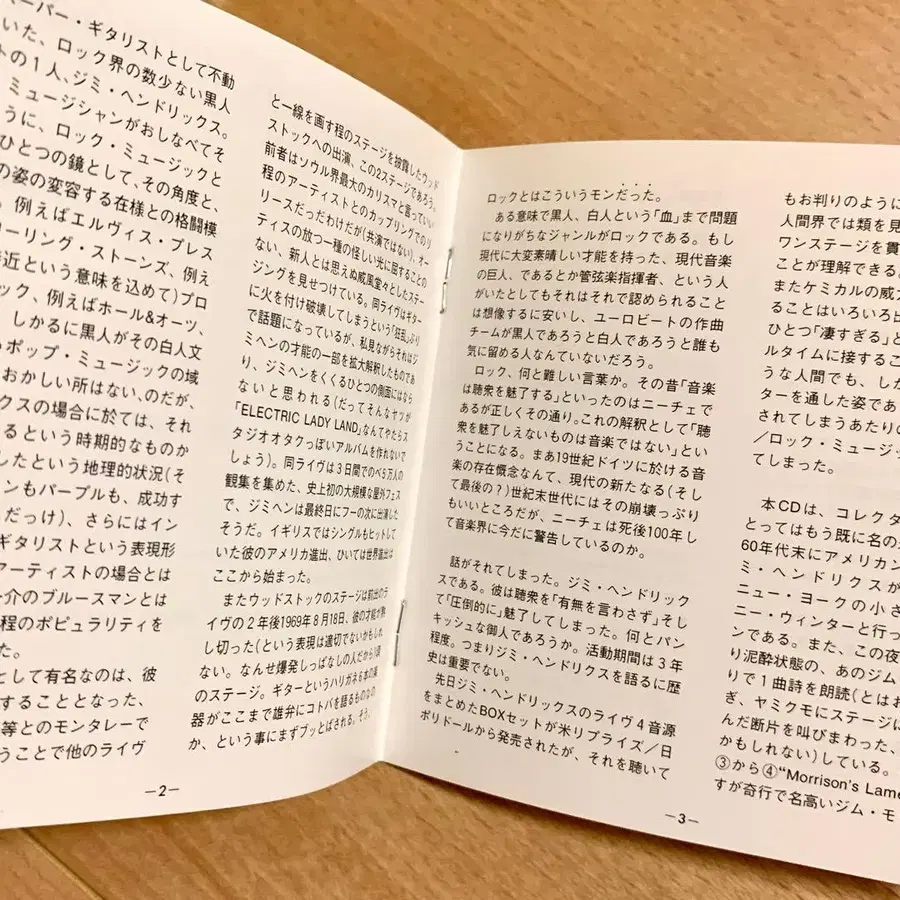 ーパー・ギタリストとして不動
いた、ロック界の数少ない黒人
トの1人、ジミ・ヘンドリックス。
ミュージシャンがおしなべてそ
うに、ロック・ミュージックと
ひとつの鏡として、その角度と、
の姿の変容する在様との格闘模
。例えばエルヴィス・プレス
ーリング・ストーンズ、例え
接近という意味を込めて)プロ
ック、例えばホール&オーツ、
しかるに黒人がその白人文
ポップ・ミュージックの域
おかしい所はない。のだが、
クスの場合に於ては、それ
るという時期的なものか
したという地理的状況(そ
ンもパープルも、成功す
だっけ)、さらにはイン
ギタリストという表現形
アーティストの場合とは
介のブルースマンとは
程のポピュラリティを
た。
として有名なのは、彼
することとなった、
等とのモンタレーで
うことで他のライヴ
と一線を画す程のステージを披露したウッド
ストックへの出演、この2ステージであろう。
前者はソウル界最大のカリスマと言っていい
程のアーティストとのカップリングでのリ
リースだったわけだが(共演ではない)、オー
ティスの放つ一種の怪しい光に屈することの
ない、新人とは思えぬ威風堂々としたステー
ジングを見せつけている。同ライヴはギター
に火を付け破壊してしまうという「狂乱」ぶり
で話題になっているが、私見ながらそれはジ
ミヘンの才能の一部を拡大解釈したものであ
り、ジミヘンをくくるひとつの側面にはなら
ないと思われる(だってそんなヤツが
「ELECTRIC LADY LAND」なんてやたらス
タジオオタクっぽいアルバムを作れないで
しょう)。同ライヴは3日間でのべ5万人の
観集を集めた、史上初の大規模な屋外フェス
で、ジミヘンは最終日にフーの次に出演した
そうだ。イギリスではシングルもヒットして
いた彼のアメリカ進出、ひいては世界進出は
ここから始まった。
またウッドストックのステージは前出のラ
イヴの2年後1969年8月18日、彼の才能が熟
し切った(という表現は適切でないかもしれ
ない。なんせ爆発しっぱなしの人だから)頃
のステージ。ギターというハリガネ6本の楽
器がここまで雄弁にコトバを語るものなの
か、という事にまずブッとばされる。そう、
—2—
ロックとはこういうモンだった。
ある意味で黒人、白人という「血」まで問題
になりがちなジャンルがロックである。もし
現代に大変素晴しい才能を持った、現代音楽
の巨人、であるとか管弦楽指揮者、という人
がいたとしてもそれはそれで認められること
は想像するに安いし、ユーロビートの作曲
チームが黒人であろうと白人であろうと誰も
気に留める人なんていないだろう。
ロック、何と難しい言葉か。その昔「音楽
は聴衆を魅了する」といったのはニーチェで
あるが正しくその通り。これの解釈として「聴
衆を魅了しえないものは音楽ではない」とい
うことになる。まあ19世紀ドイツに於ける音
楽の存在慨念なんて、現代の新たなる(そし
て最後の?)世紀末世代にはその崩壊っぷり
もいいところだが、ニーチェは死後100年し
て音楽界に今だに警告しているのか。
話がそれてしまった。ジミ・ヘンドリック
スである。彼は聴衆を「有無を言わさず」そし
て「圧倒的に」魅了してしまった。何とパン
キッシュな御人であろうか。活動期間は3年
程度。つまりジミ・ヘンドリクスを語るに歴
史は重要でない。
先日ジミ・ヘンドリックスのライヴ4音源
をまとめたBOXセットが米リプライズ/日
ポリドールから発売されたが、それを聴いて
—3—
もお判りのように
人間界では類を見
ワンステージを貫
ことが理解できる。
またケミカルの威力
ることはいろいろ出
ひとつ「凄すぎる」と
ルタイムに接するこ
うな人間でも、しか
ターを通した姿であ
されてしまうあたりの
/ロック・ミュージッ
てしまった。
本CDは、コレクタ
とってはもう既に名の
60年代末にアメリカン
ミ・ヘンドリクスが
ニュー・ヨークの小さ
ニー・ウィンターと行っ
ンである。また、この夜
り泥酔状態の、あのジム
りで1曲詩を朗読(とはお
ぎ、ヤミクモにステージに
んだ断片を叫びまわった、
かもしれない)している。
③から④“Morrison's Lame
すが奇行で名高いジム・モ